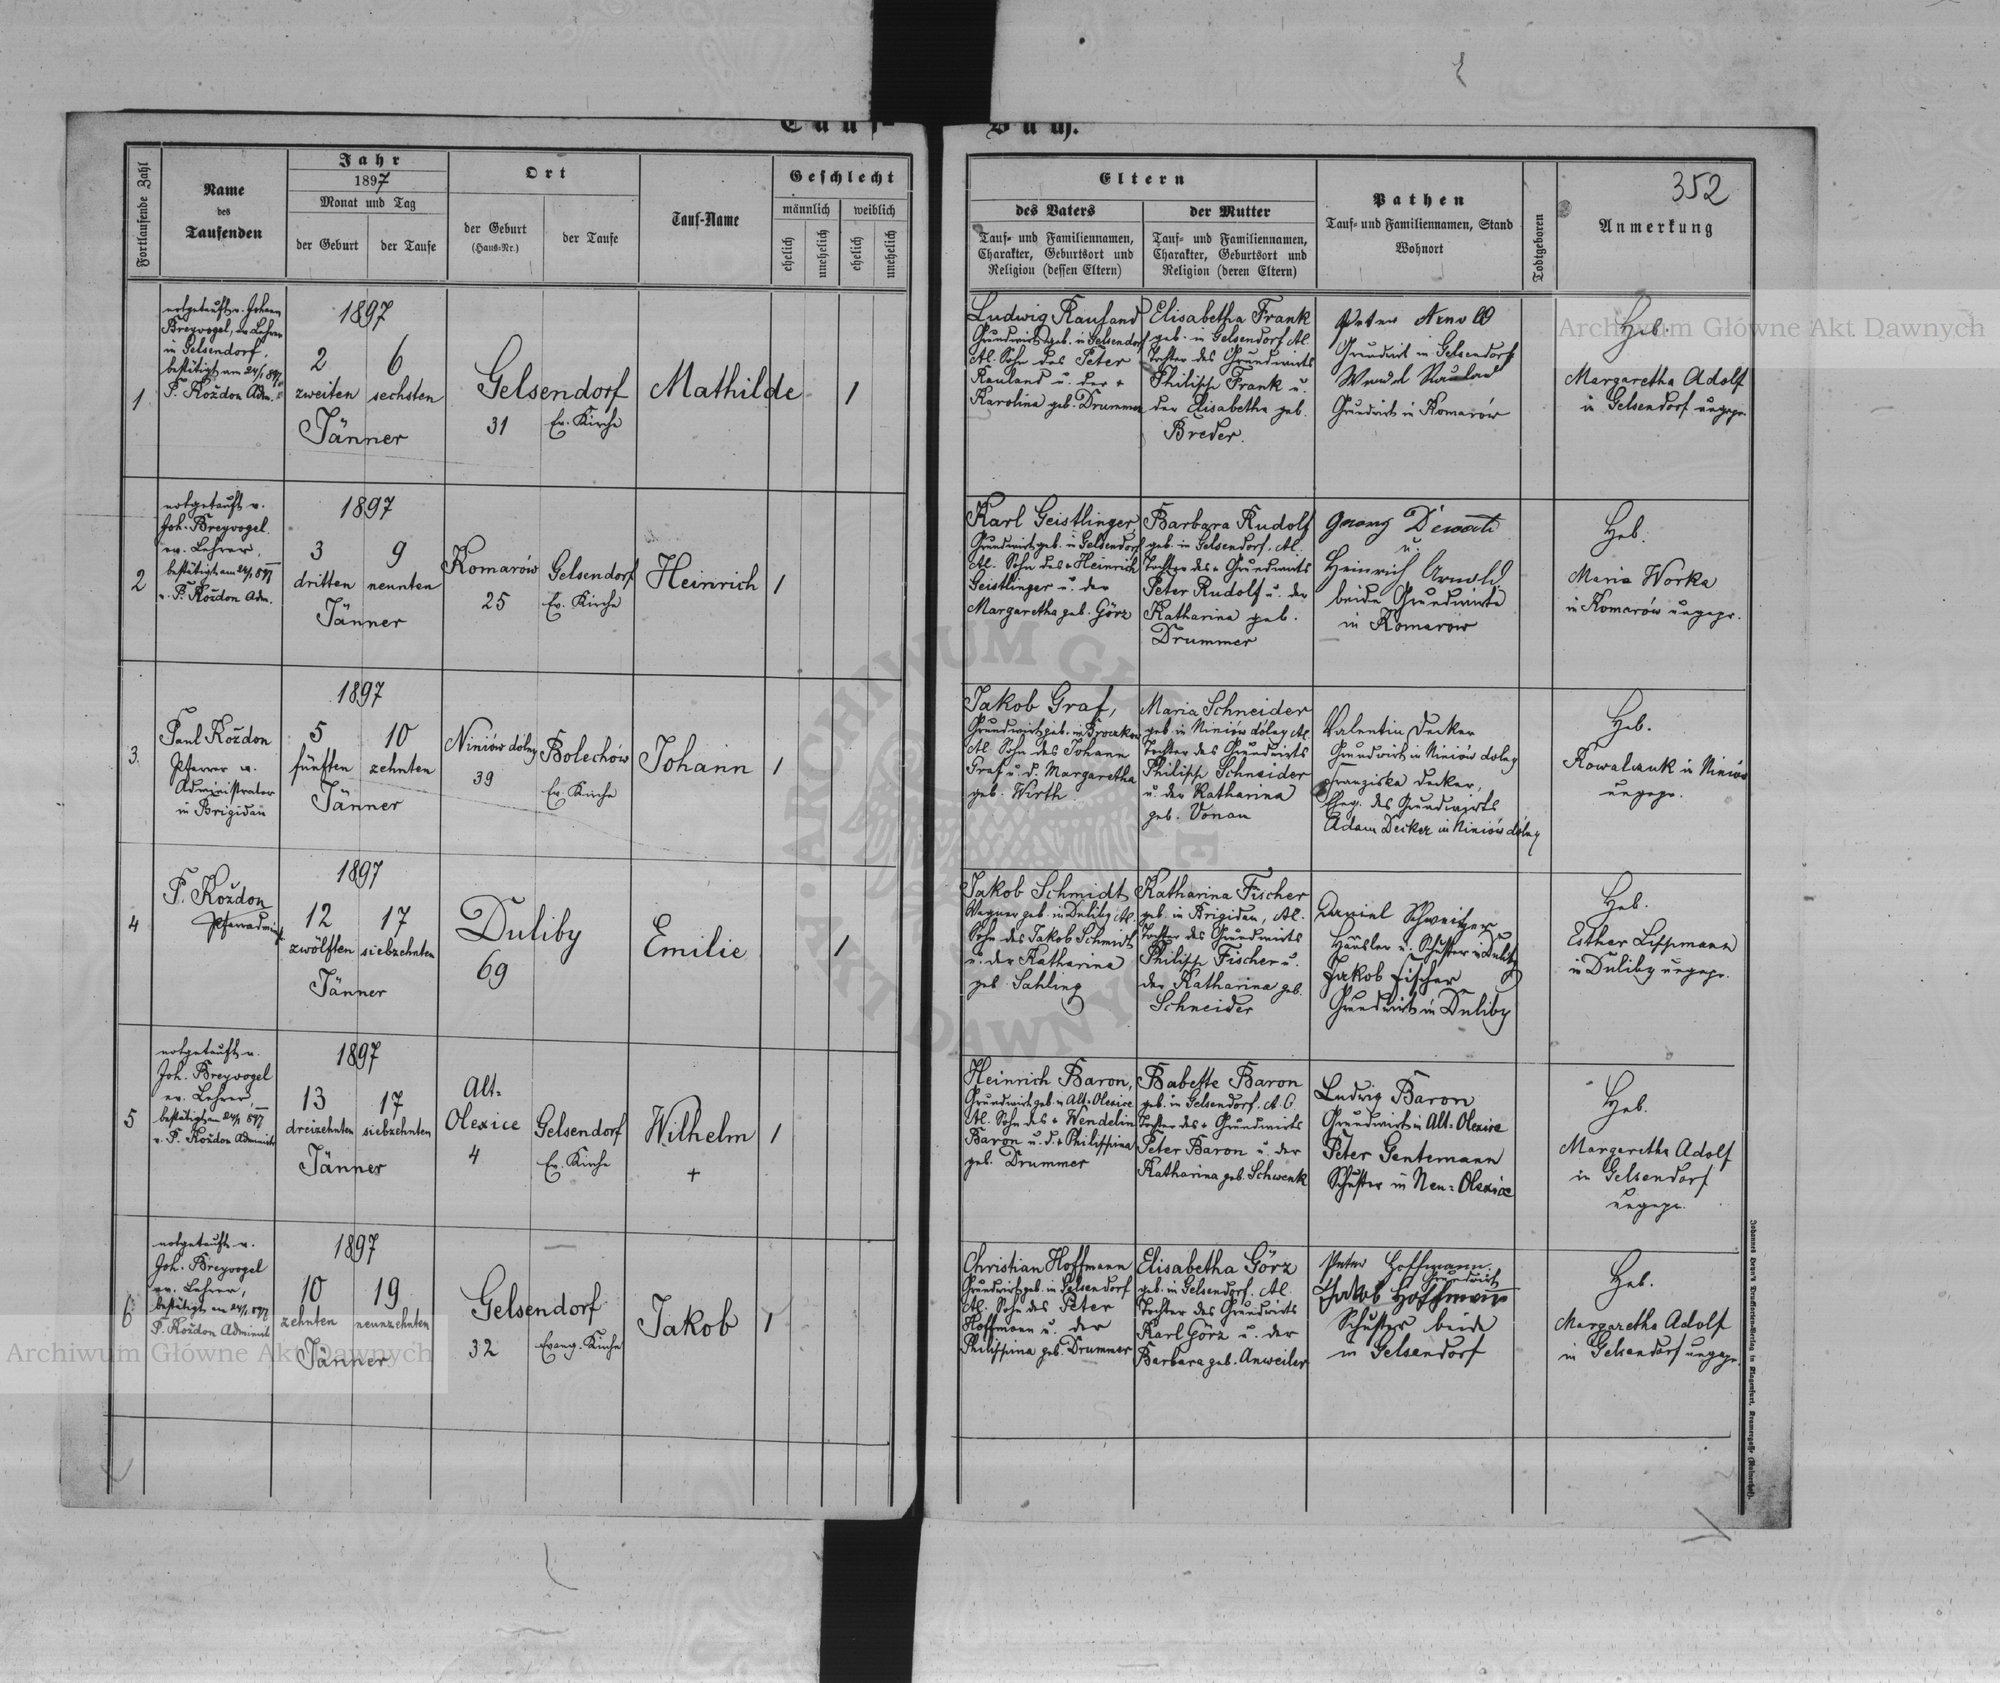 Tauf-
Buch.
352
Fortlaufende Zahl
Name
des
Taufenden
Jahr
1897
Monat und Tag
der Geburt
der Taufe
Ort
der Geburt
(Haus-Nr.)
der Taufe
Tauf-Name
Geschlecht
männlich
weiblich
ehelich
unehelich
ehelich
unehelich
Eltern
des Vaters
Tauf- und Familiennamen,
Charakter, Geburtsort und
Religion (dessen Eltern)
der Mutter
Tauf- und Familiennamen,
Charakter, Geburtsort und
Religion (deren Eltern)
Pathen
Tauf- und Familiennamen, Stand
Wohnort
Todtgeboren
Anmerkung
1
notgetauft v. Johann
Breyvogel, ev. Lehrer
in Gelsendorf,
bestätigt am 24/1 897
P. Koždon Adm.
1897
2
zweiten
6
sechsten
Jänner
Gelsendorf
31
Ev. Kirche
Mathilde
1
Ludwig Rauland
Grundwirt geb. in Gelsendorf
Al. Sohn des Peter
Rauland u. der +
Karolina geb. Drummer
Elisabetha Frank
geb. in Gelsendorf Al.
Tochter des Grundwirts
Philipp Frank u.
der Elisabetha geb.
Breder.
Peter Arnold
Grundwirt in Gelsendorf
Wendel Rauland
Grundwirt in Komarów
Heb.
Margaretha Adolf
in Gelsendorf ungepr.
2
notgetauft v.
Joh. Breyvogel
ev. Lehrer,
bestätigt am 24/1 897
v. P. Koždon Adm.
1897
3
dritten
9
neunten
Jänner
Komarów
25
Gelsendorf
Ev. Kirche
Heinrich
1
Karl Geistlinger
Grundwirt geb. in Gelsendorf
Al. Sohn des + Heinrich
Geistlinger u. der
Margaretha geb. Görz
Barbara Rudolf
geb. in Gelsendorf. Al.
Tochter des + Grundwirts
Peter Rudolf u. der
Katharina geb.
Drummer
Georg
u.
Heinrich Arnold,
beide Grundwirte
in Komarow
Heb.
Maria Worka
in Komarów ungepr.
3
Paul Koždon
Pfarrer u.
Administrator
in Brigidau
1897
5
fünften
10
zehnten
Jänner
Niniów dólny
39
Bolechów
Ev. Kirche
Johann
1
Jakob Graf,
Grundwirt geb. in
Al. Sohn des Johann
Graf u. d. Margaretha
geb. Wirth
Maria Schneider
geb. in Niniów dólny Al.
Tochter des Grundwirts
Philipp Schneider
u. der Katharina
geb. Vonau
Valentin Decker
Grundwirt in Niniów dolny
Franziska Decker,
Eheg. des Grundwirts
Adam Decker in Niniów dólny
Heb.
Kowalczuk in Niniów
ungepr.
4
P. Koždon
Pfarradminist.
1897
12
zwölften
17
siebzehnten
Jänner
Duliby
69
Emilie
1
Jakob Schmidt
Wagner geb. in Duliby Al.
Sohn des Jakob Schmidt
u. der Katharina
geb. Sahling
Katharina Fischer
geb. in Brigidau, Al.
Tochter des Grundwirts
Philipp Fischer u.
der Katharina geb.
Schneider
Daniel Schweitzer
Häusler u. Schuster in Duliby
Jakob Fischer
Grundwirt in Duliby
Heb.
Esther Lippmann
in Duliby ungepr.
5
notgetauft v.
Joh. Breyvogel
ev. Lehrer,
bestätigt am 24/1 897
v. P. Koždon Administr
1897
13
dreizehnten
17
siebzehnten
Jänner
Alt-
Olexice
4
Gelsendorf
Ev. Kirche
Wilhelm
+
1
Heinrich Baron,
Grundwirt geb. in Alt-Olexice
Al. Sohn des + Wendelin
Baron u. d. + Philippina
geb. Drummer
Babette Baron
geb. in Gelsendorf. A. C.
Tochter des + Grundwirts
Peter Baron u. der
Katharina geb. Schwenk
Ludwig Baron
Grundwirt in Alt-Olexice
Peter Gentemann
Schuster in Neu-Olexice
Heb.
Margaretha Adolf
in Gelsendorf
ungepr.
6
notgetauft v.
Joh. Breyvogel
ev. Lehrer,
bestätigt am 24/1 897
P. Koždon Administr
1897
10
zehnten
19
neunzehnten
Jänner
Gelsendorf
32
Evang. Kirche
Jakob
1
Christian Hoffmann
Grundwirt geb. in Gelsendorf
Al. Sohn des Peter
Hoffmann u. der
Philippina geb. Drummer
Elisabetha Görz
geb. in Gelsendorf. Al.
Tochter des Grundwirts
Karl Görz u. der
Barbara geb. Anweiler
Peter Hoffmann
Grundwirt
Jakob Hoffmann
Schuster beide
in Gelsendorf
Heb.
Margaretha Adolf
in Gelsendorf ungepr.
Archiwum Główne Akt Dawnych
Archiwum Główne Akt Dawnych
ARCHIWUM GŁÓWNE
AKT DAWNYCH